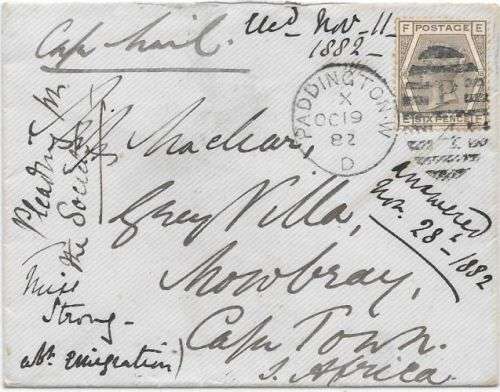 Cape Mail.
Recd Nov. 11
1882
F POSTAGE E
E SIX PENCE F
PADDINGTON.W
X
OC 19
82
D
Maclear,
Grey Villa,
Mowbray,
Cape Town.
S. Africa.
answered
Nov. 28th 1882
Pleading for
the Society
Miss
Strong
abt. emigration)